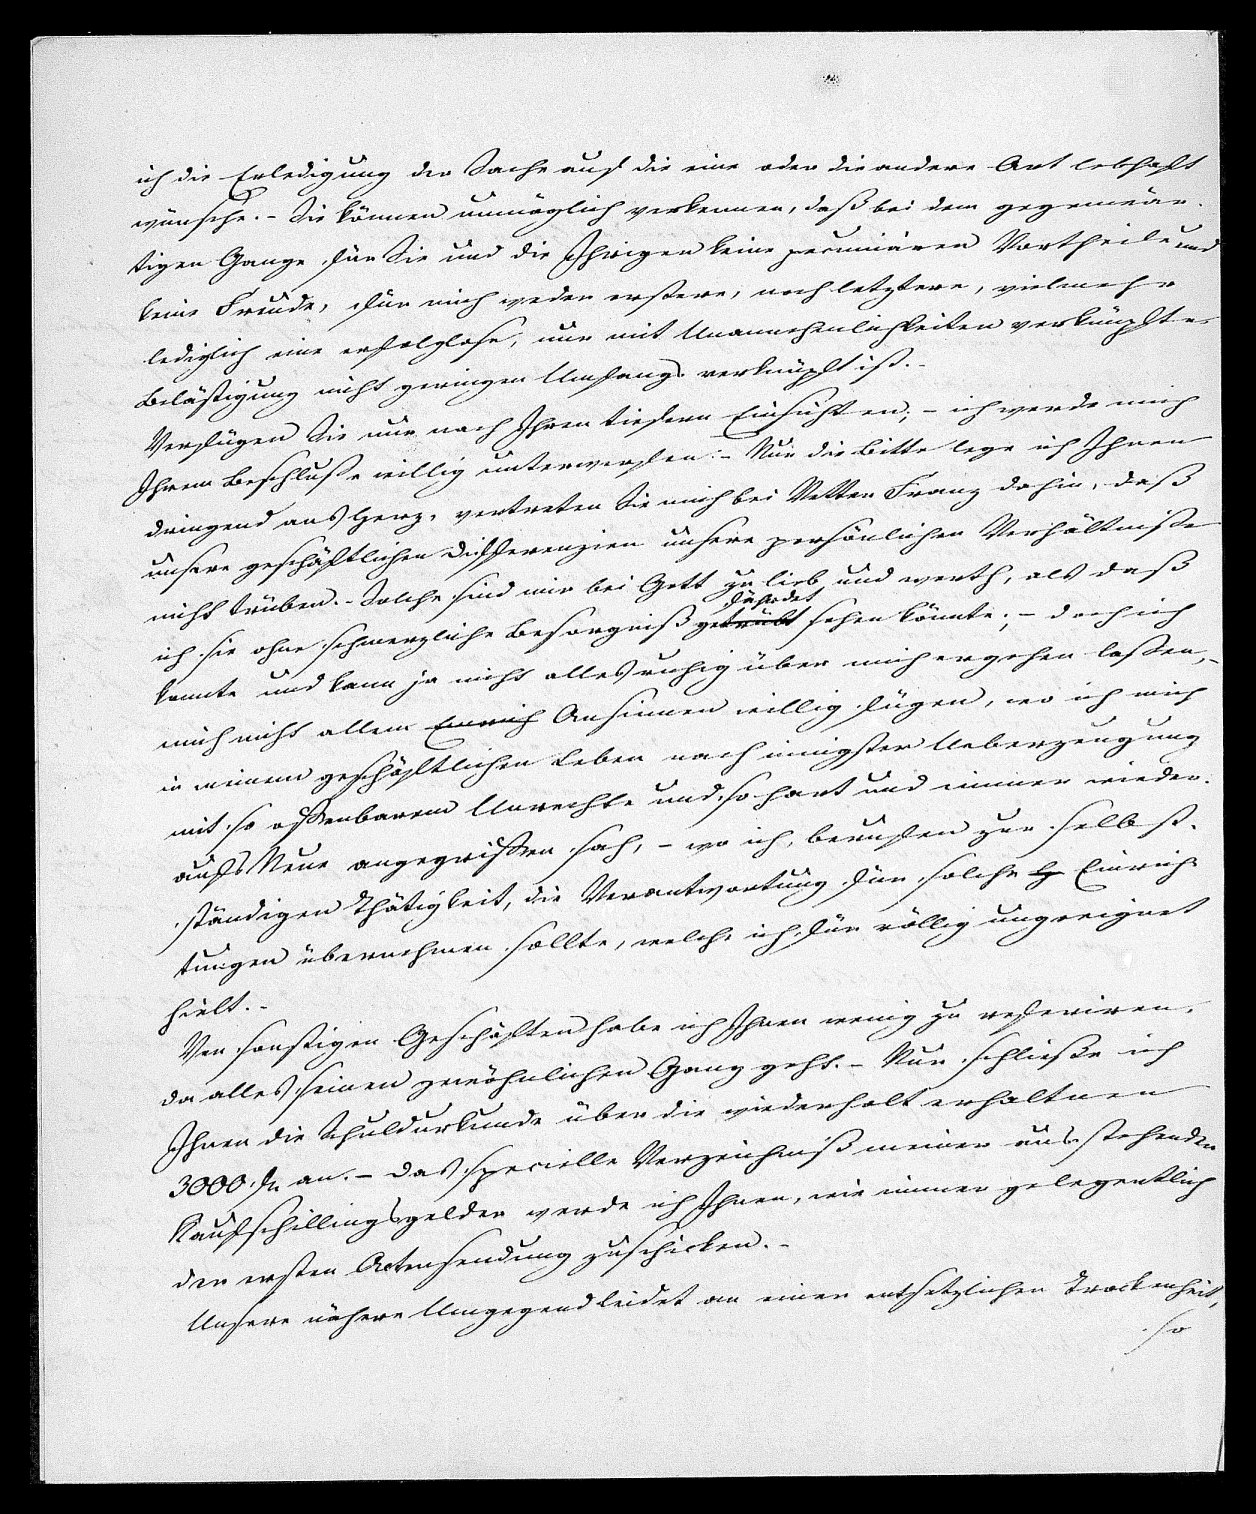 ich die Erledigung der Sache auf die eine oder die andere Art lebhaft
wünsche. - Sie können unmöglich verkennen, daß bei dem gegenwär-
tigen Gange für Sie und die Ihrigen keine pecuniären Vortheile und
keine Freude, für mich weder erstere, noch letztere, vielmehr
lediglich eine erfolglose, nur mit Unannehmlichkeiten verknüpfte
Belästigung nicht geringen Umfangs verknüpft ist. -
Verfügen Sie nur nach Ihren tiefern Einsichten; - ich werde mich
Ihrem Beschluße willig unterwerfen. - Nur die Bitte lege ich Ihnen
dringend ans Herz, vertreten Sie mich bei Vetter Franz dahin, daß
unsere geschäftlichen Differenzien unsere persönlichen Verhältniße
nicht trüben. - Solche sind mir bei Gott zu lieb und werth, als daß
ich sie ohne schmerzliche Besorgniß getrübt fährdet sehen könnte; - doch ich
konnte und kann ja nicht alles ruhig über mich ergehen laßen, -
mich nicht allem Ansinnen willig fügen, wo ich mich
in meinem geschäftlichen Leben nach innigster Ueberzeugung
mit so offenbarem Unrechte und so hart und immer wieder
aufs Neue angegriffen sah, - wo ich, berufen zur selbst-
ständigen Thätigkeit, die Verantwortung für solche Einrich-
tungen übernehmen sollte, welche ich für völlig ungeeignet
hielt. -
Von sonstigen Geschäften habe ich Ihnen wenig zu referiren,
da alles seinen gewöhnlichen Gang geht. - Nur schließe ich
Ihnen die Schuldurkunde über die wiederholt erhaltnen
3000 fl an. - Das specielle Verzeichniß meiner ausstehenden
Kaufschillingsgelder werde ich Ihnen, wie immer gelegentlich
der ersten Actensendung zuschicken. -
Unsere nähere Umgegend leidet an einer entsetzlichen Trockenheit,
so